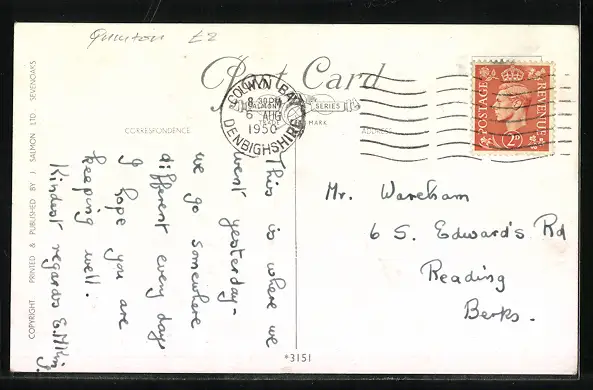 Quinton £2
Post Card
SALMON SERIES
TRADE MARK
CORRESPONDENCE
ADDRESS
COLWYN BAY
8.30PM
6 AUG
1950
DENBIGHSHIRE
POSTAGE
REVENUE
2D
This is where we
went yesterday-
we go somewhere
different every day
I hope you are
keeping well.
Kindest regards
Mr. Wareham
6 S. Edward's Rd
Reading
Berks.
COPYRIGHT PRINTED & PUBLISHED BY J. SALMON LTD. SEVENOAKS
*3151